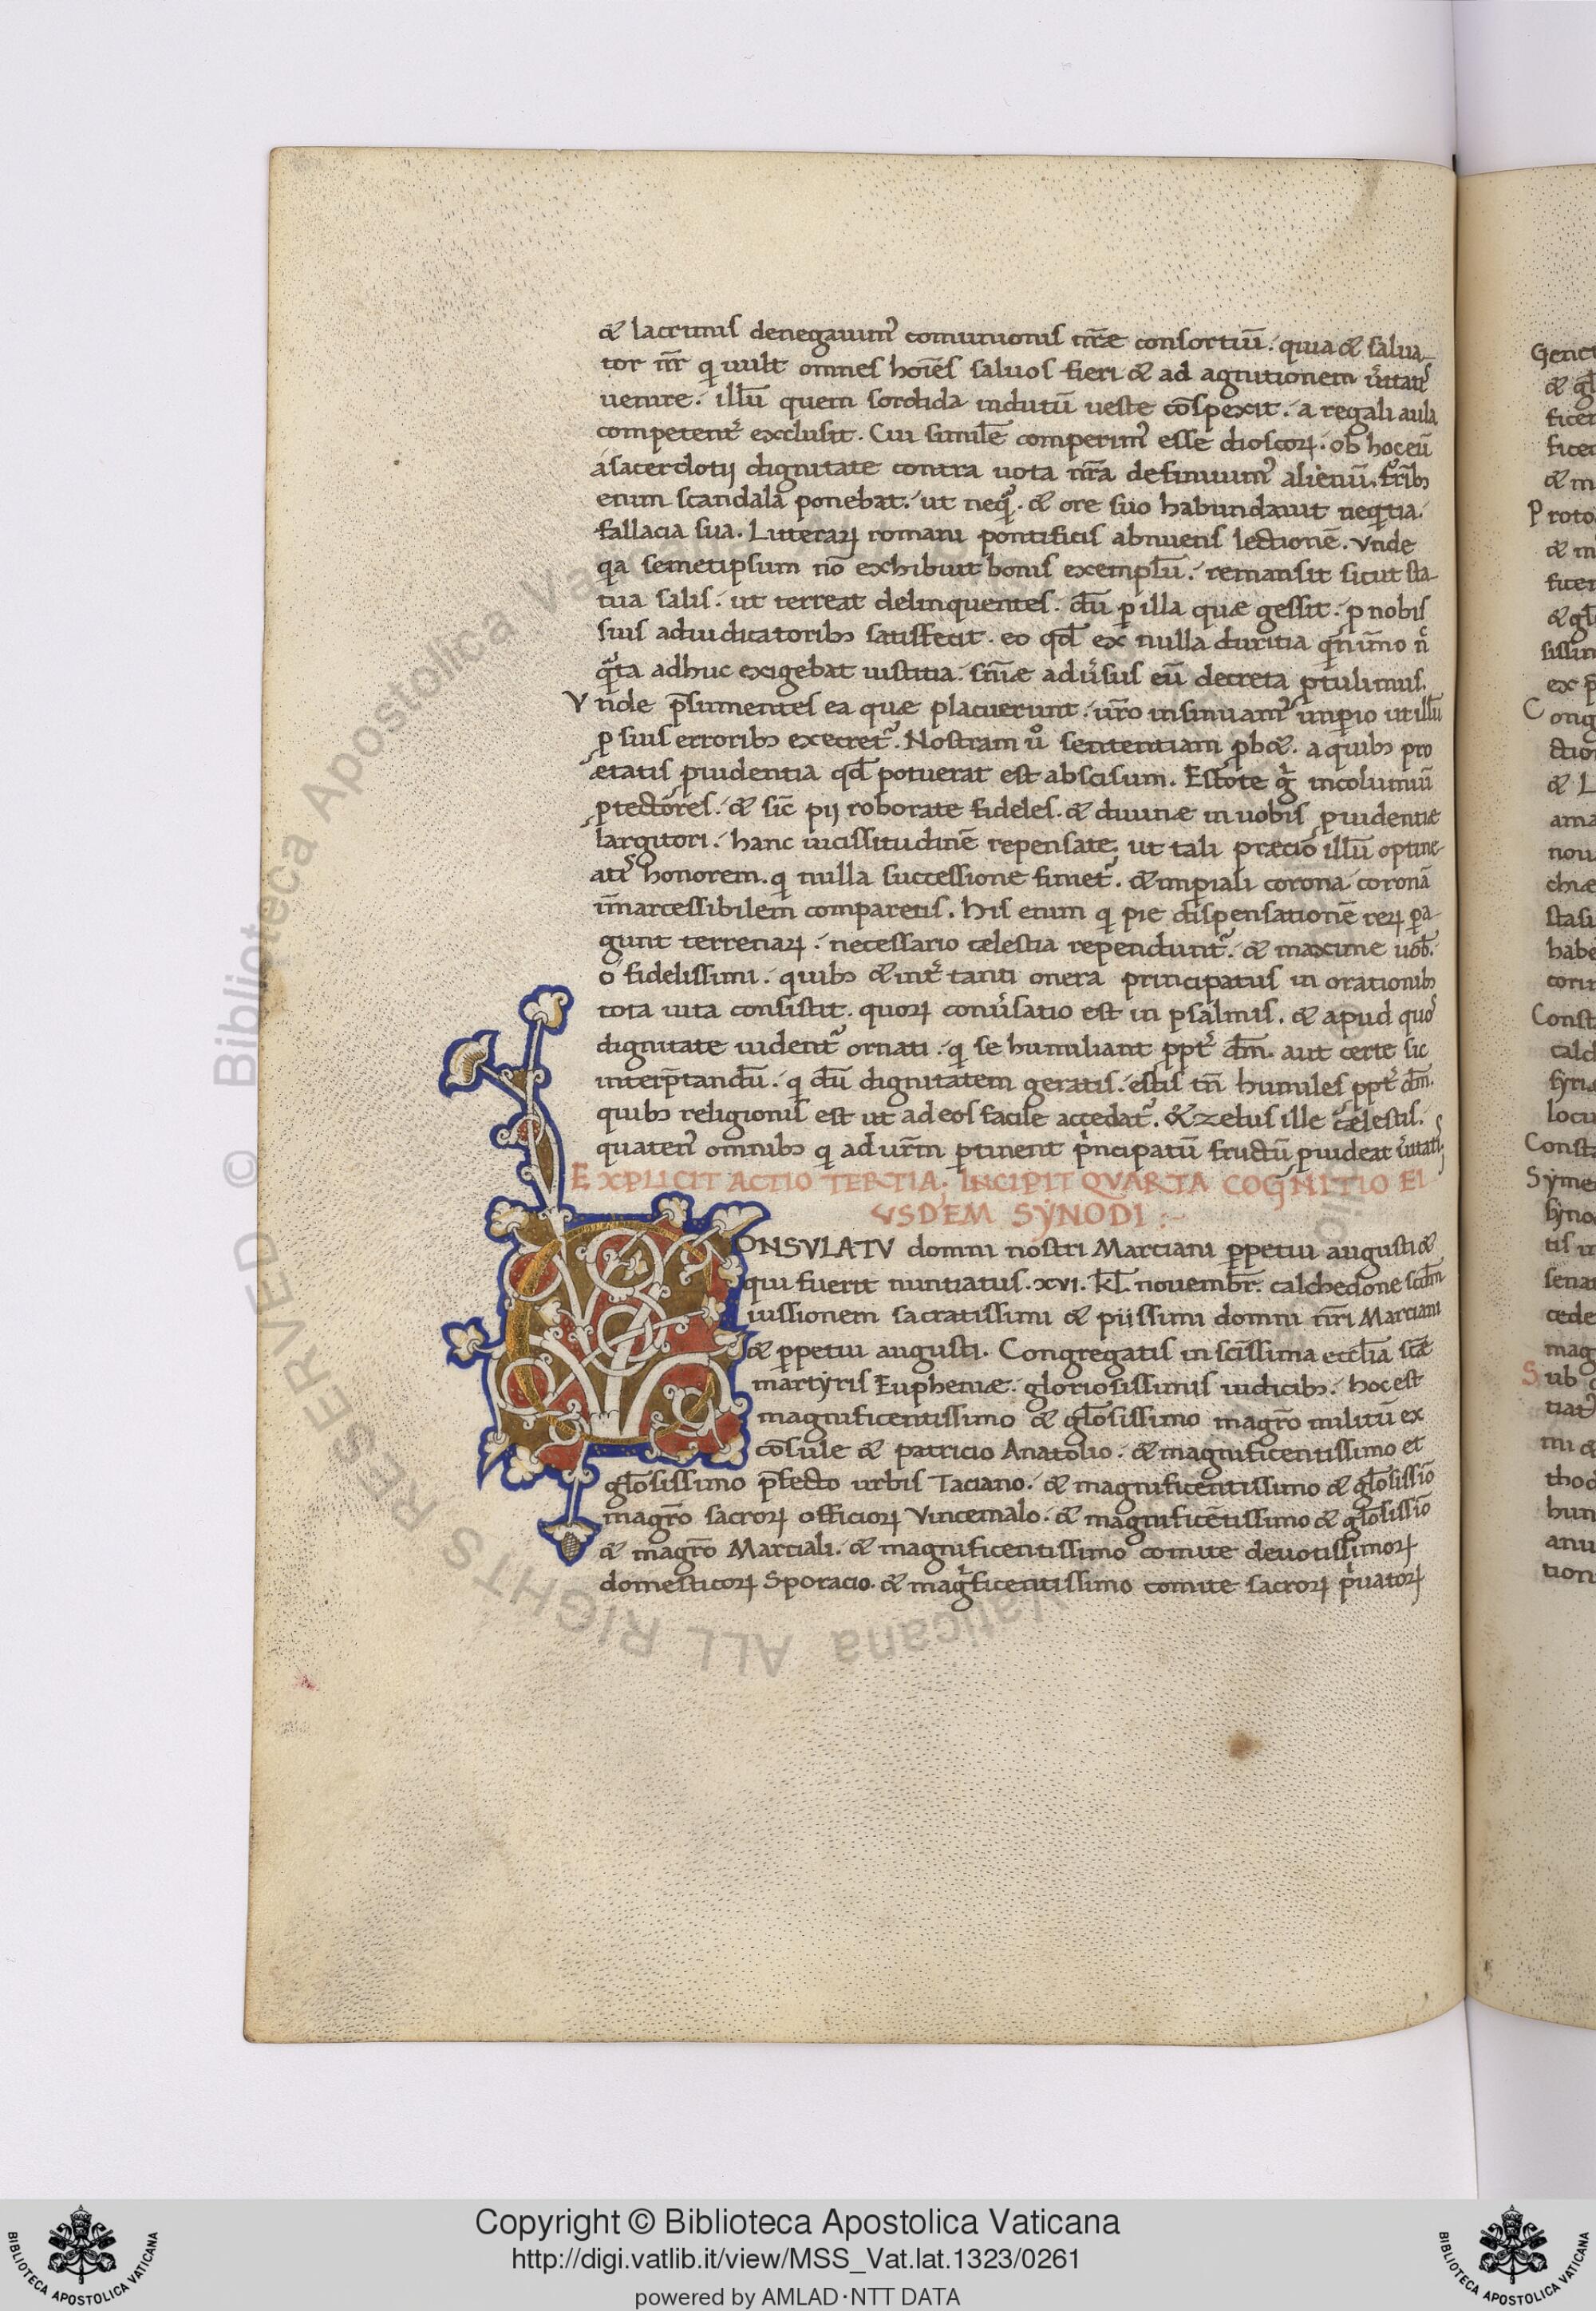 & lacrimis denegauim᷒ comunionis nr̄æ consortiū. quia & salua-
tor nr̄ qi uult omnes hoīes saluos fieri & ad agnitionem uĩtatis
uenire. illū quem sordida indutū ueste cōspexit. a regali aula
competent᷑ exclusit. Cui simile comperim᷒ esse dioscoꝝ. ob hoc eū
a sacerdotij dignitate contra uota nr̄a definiuim᷒ alienū. fr̄ib;
enim scandala ponebat. ut neqͥ. & ore suo habundauit neqͥtia.
fallacia sua. Litteraꝝ romani pontificis abnuens lectionē. Vnde
qͥa semetipsum nō exhibuit bonis exemplū. remansit sicut sta-
tua salis. ut terreat delinquentes. dū ꝑ illa quæ gessit. ꝓ nobis
suis adiudicatorib; satisfecit. eo qd̄ ex nulla duritia qͥnimo n̄
qͣta adhuc exigebat iustitia. sn̄iæ aduͥsus eū decreta ꝓtulimus.
Vnde p̄sumentes ea quæ placuerunt. ur̄o insinuam᷒ imꝑio ut illū
ꝓ suis errorib; execret᷑. Nostram u͛o sententiam ꝓb&. a quib; pro
ætatis ꝓuidentia qd̄ potuerat est abscisum. Estote gͦ incolumiū
ꝓtectores. & sic̄ pij roborate fideles. & diuinæ in uobis ꝓuidentiæ
largitori. hanc uicissitudinē repensate. ut tali præcio illū optine-
atis honorem. qi nulla successione finiet᷑. & imꝑiali corona coronā
īmarcessibilem comparetis. His enim qi pie dispensationē reꝝ ꝑa-
gunt terrenaꝝ. necessario cælestia rependunt᷑. & maxime uob̄.
o fidelissimi. quib; & int᷑ tanti onera principatus in orationib;
tota uita consistit. quoꝝ conuͥsatio est in psalmis. & apud quos
dignitate uident᷑ ornati. qi se humiliant ꝓpt᷑ dm̄. aut certe sic
interp̄tandū. qi dū dignitatem geratis. estis tn̄ humiles ꝓpt᷑ dm̄.
quib; religionis est ut ad eos facile accedat᷑. & zelus ille cælestis.
quaten᷒ omnib; qi ad ur̄m ꝑtinent pͥncipatū fructū ꝓuideat uĩtatis
EXPLICIT ACTIO TERTIA. INCIPIT QVARTA COGNITIO EI
VSDEM SYNODI :-
CONSVLATV domni nostri Marciani ꝑpetui augusti &
qui fuerit nuntiatus. xvi. kl̄. nouembr̄. calchedone scd̄m
iussionem sacratissimi & piissimi domni nr̄i Marciani
& ꝑpetui augusti. Congregatis in sc̄issima eccl̄ia sc̄æ
martyris Eupheniæ. gloriosissimis iudicib;. hoc est
magnificentissimo & gl̄osissimo magr̄o militū ex
cōsule & patricio Anatolio. & magnificentissimo et
gl̄osissimo p̄fecto urbis Taciano. & magnificentissimo & gl̄osissīo
magr̄o sacroꝝ officioꝝ Vincemalo. & magnificētissimo & gl̄osissīo
& magr̄o Marciali. & magnificentissimo comite deuotissimoꝝ
domesticoꝝ Sporacio. & magͥficentissimo comite sacroꝝ pͥuatoꝝ
© Biblioteca Apostolica Vaticana ALL RIGHTS RESERVED
Copyright © Biblioteca Apostolica Vaticana
http://digi.vatlib.it/view/MSS_Vat.lat.1323/0261
powered by AMLAD·NTT DATA
BIBLIOTECA APOSTOLICA VATICANA
BIBLIOTECA APOSTOLICA VATICANA